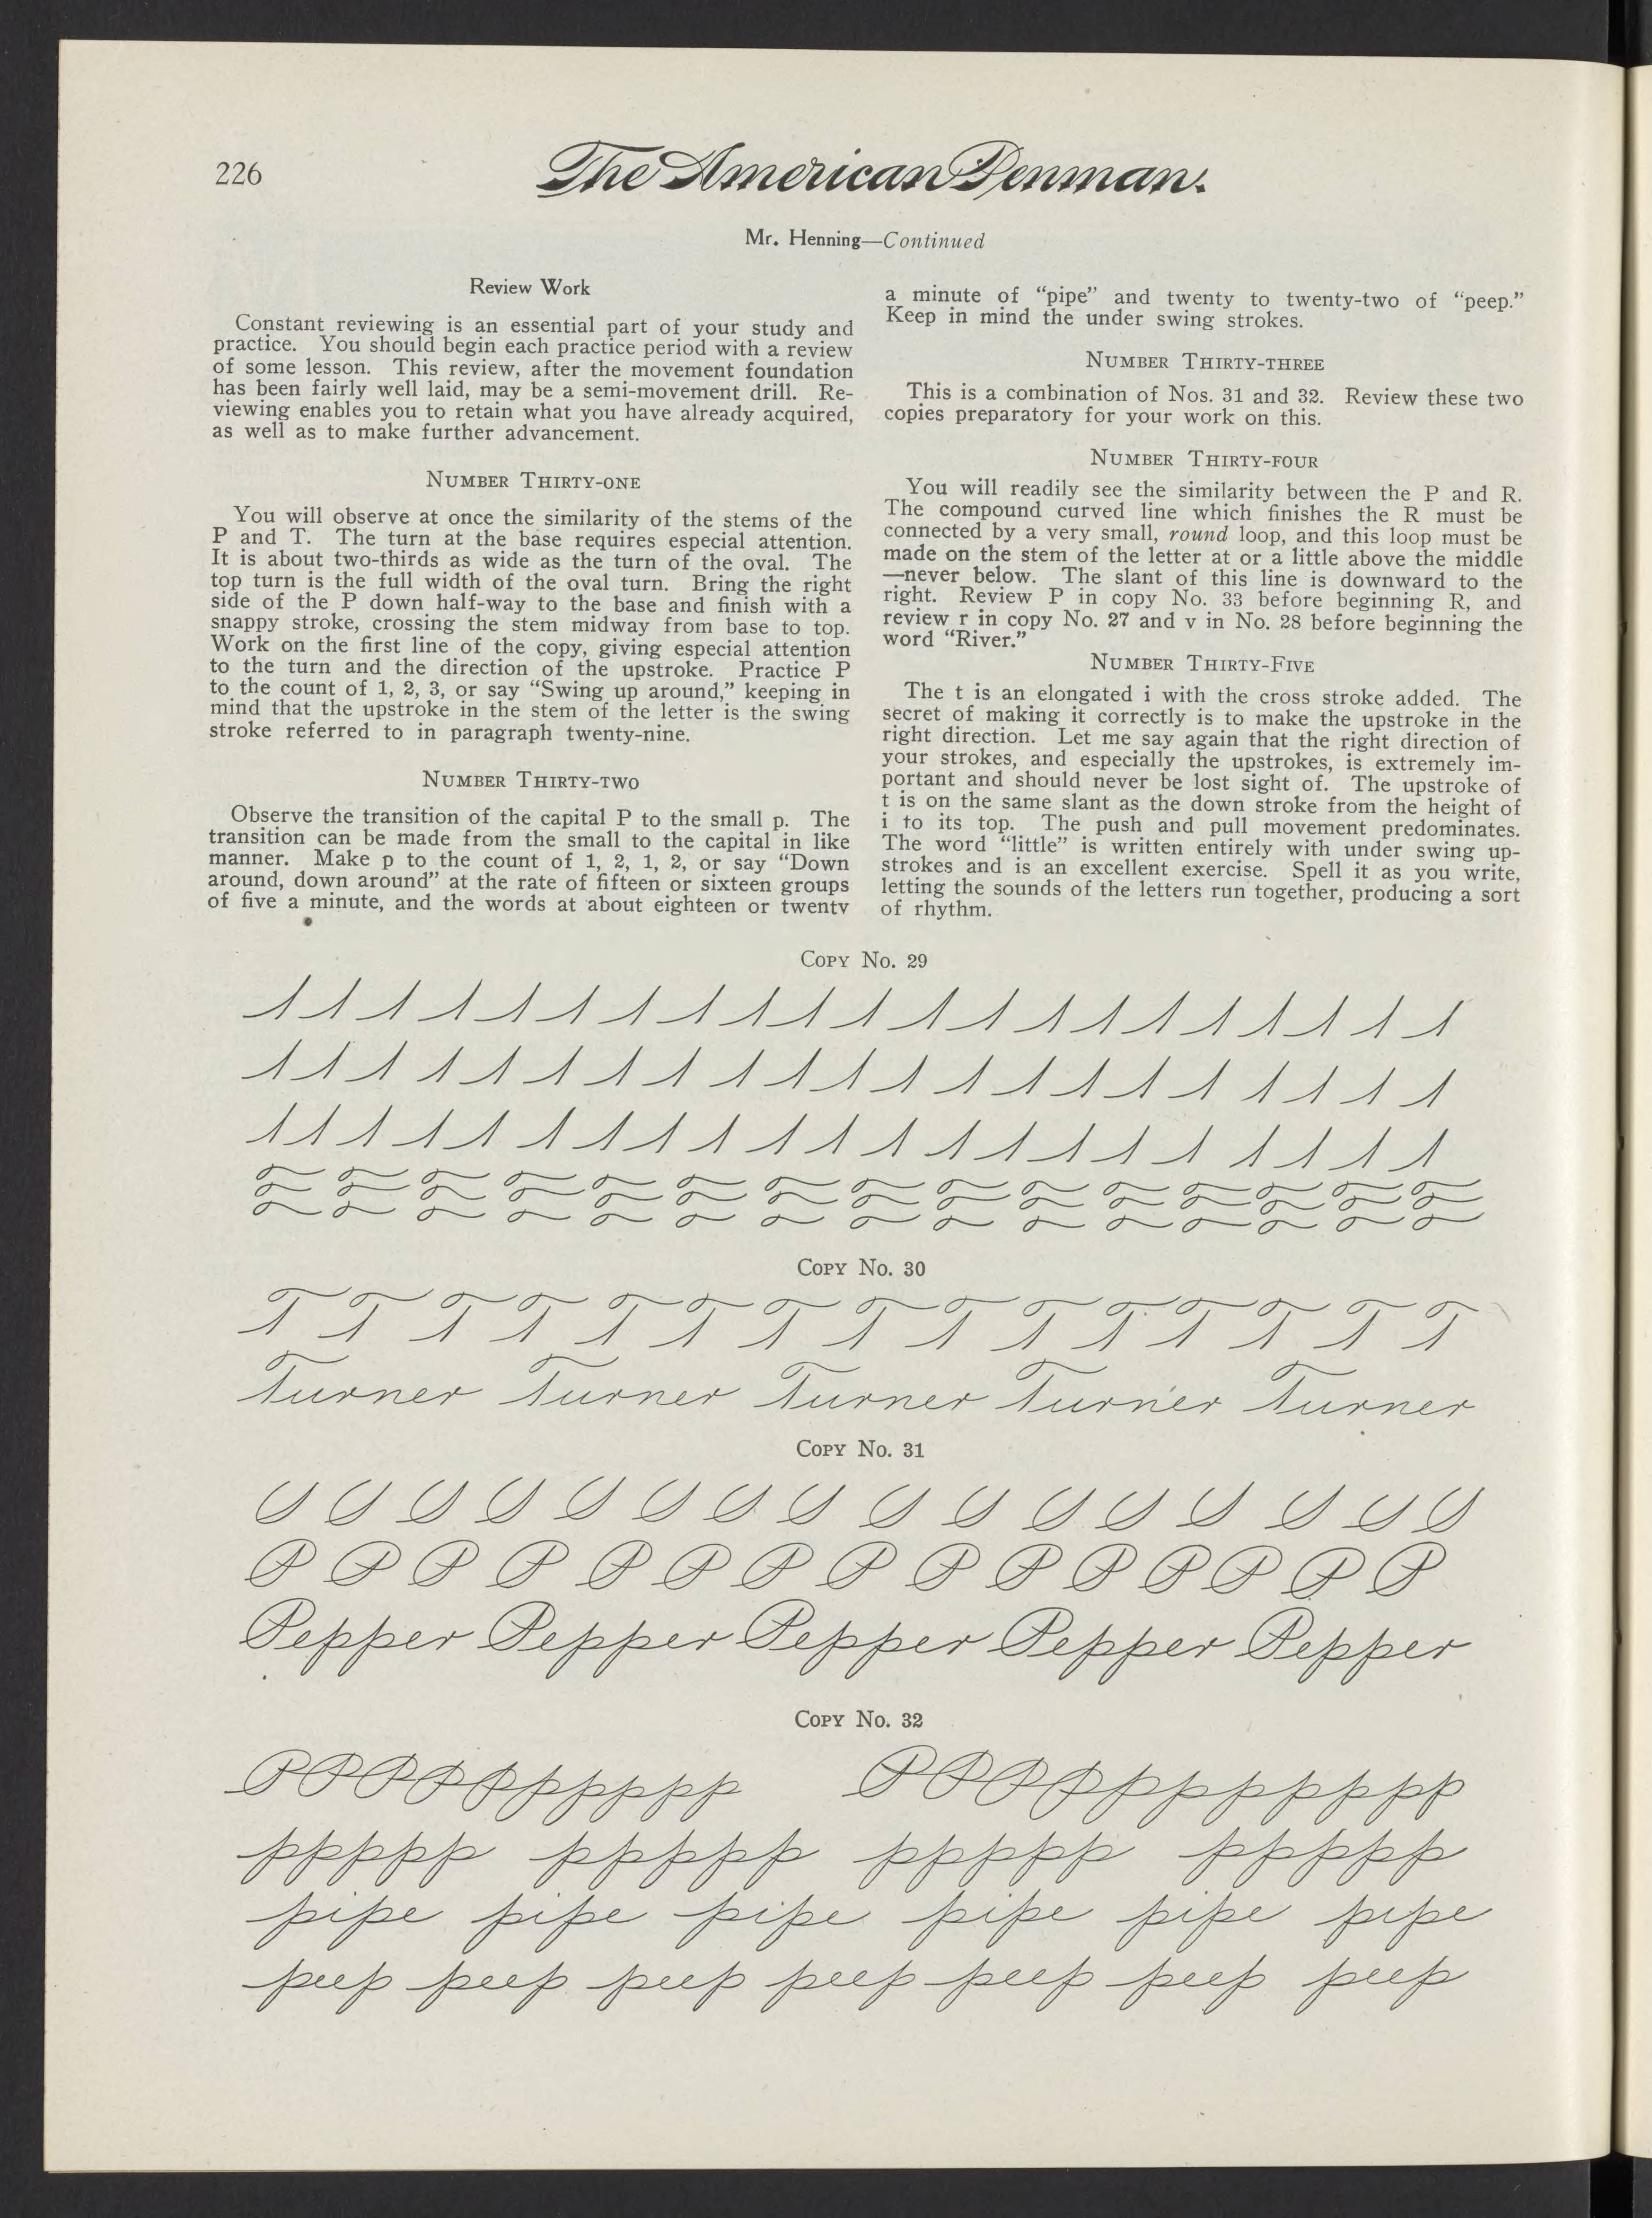 226
The American Penman.
Mr. Henning—Continued
Review Work
Constant reviewing is an essential part of your study and
practice. You should begin each practice period with a review
of some lesson. This review, after the movement foundation
has been fairly well laid, may be a semi-movement drill. Re-
viewing enables you to retain what you have already acquired,
as well as to make further advancement.
Number Thirty-one
You will observe at once the similarity of the stems of the
P and T. The turn at the base requires especial attention.
It is about two-thirds as wide as the turn of the oval. The
top turn is the full width of the oval turn. Bring the right
side of the P down half-way to the base and finish with a
snappy stroke, crossing the stem midway from base to top.
Work on the first line of the copy, giving especial attention
to the turn and the direction of the upstroke. Practice P
to the count of 1, 2, 3, or say “Swing up around,” keeping in
mind that the upstroke in the stem of the letter is the swing
stroke referred to in paragraph twenty-nine.
Number Thirty-two
Observe the transition of the capital P to the small p. The
transition can be made from the small to the capital in like
manner. Make p to the count of 1, 2, 1, 2, or say “Down
around, down around” at the rate of fifteen or sixteen groups
of five a minute, and the words at about eighteen or twenty
a minute of “pipe” and twenty to twenty-two of “peep.”
Keep in mind the under swing strokes.
Number Thirty-three
This is a combination of Nos. 31 and 32. Review these two
copies preparatory for your work on this.
Number Thirty-four
You will readily see the similarity between the P and R.
The compound curved line which finishes the R must be
connected by a very small, round loop, and this loop must be
made on the stem of the letter at or a little above the middle
—never below. The slant of this line is downward to the
right. Review P in copy No. 33 before beginning R, and
review r in copy No. 27 and v in No. 28 before beginning the
word “River.”
Number Thirty-Five
The t is an elongated i with the cross stroke added. The
secret of making it correctly is to make the upstroke in the
right direction. Let me say again that the right direction of
your strokes, and especially the upstrokes, is extremely im-
portant and should never be lost sight of. The upstroke of
t is on the same slant as the down stroke from the height of
i to its top. The push and pull movement predominates.
The word “little” is written entirely with under swing up-
strokes and is an excellent exercise. Spell it as you write,
letting the sounds of the letters run together, producing a sort
of rhythm.
Copy No. 29
Copy No. 30
T T T T T T T T T T T T T T T
Turner Turner Turner Turner Turner
Copy No. 31
P P P P P P P P P P P P P P
Pepper Pepper Pepper Pepper Pepper
Copy No. 32
PPPPPppppp PPPPppppppp
ppppp ppppp ppppp ppppp
pipe pipe pipe pipe pipe pipe
peep peep peep peep peep peep peep